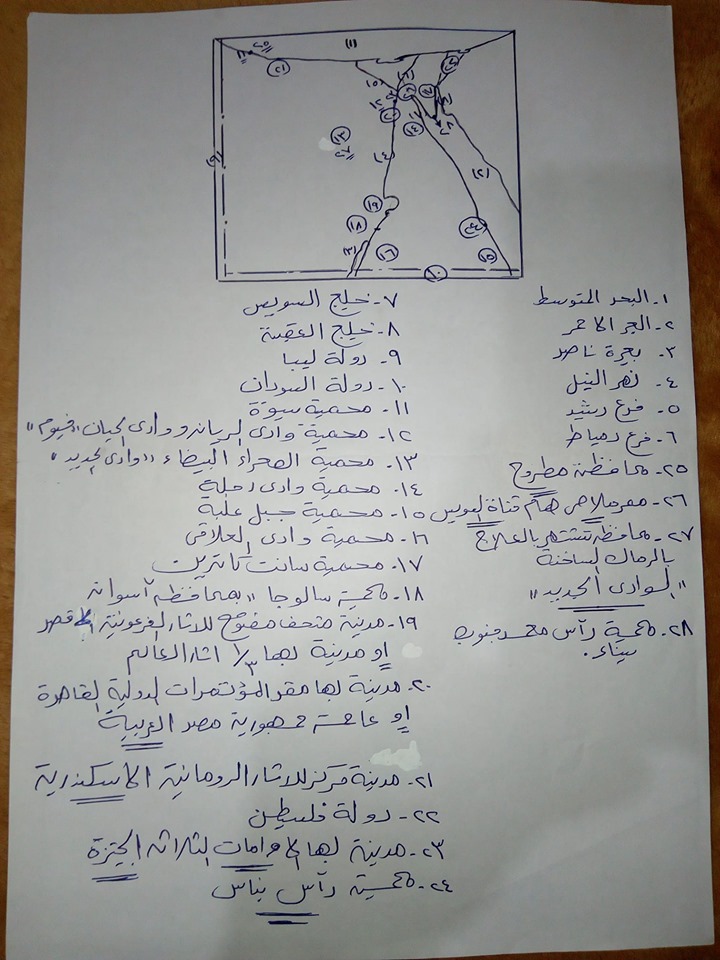 ١- البحر المتوسط
٢- البحر الاحمر
٣- بحيرة ناصر
٤- نهر النيل
٥- فرع رشيد
٦- فرع دمياط
٢٥- محافظة مطروح
٢٦- ممر ملاحى هام قناة السويس
٢٧- محافظة تشتهر بالعلاج
بالرمال الساخنة
"الوادى الجديد"
٢٨- محمية رأس محمد جنوب
سيناء.
٧- خليج السويس
٨- خليج العقبة
٩- دولة ليبا
١٠- دولة السودان
١١- محمية سيوة
١٢- محمية وادى الريان ووادى الحيتان "فيوم"
١٣- محمية الصحراء البيضاء "وادى الجديد"
١٤- محمية وادى دجلة
١٥- محمية جبل علبة
١٦- محمية وادى العلاقى
١٧- محمية سانت كاترين
١٨- محمية سالوجا "بمحافظة أسوان
١٩- مدينة متحف مفتوح للاثار الفرعونية الاقصر
او مدينة لها ١/٣ اثار العالم
٢٠- مدينة بها مقر المؤتمرات الدولية القاهرة
او عاصمة جمهورية مصر العربية
٢١- مدينة مركز للاثار الرومانية الاسكندرية
٢٢- دولة فلسطين
٢٣- مدينة بها الاهرامات الثلاثة الجيزة
٢٤- محمية رأس بناس